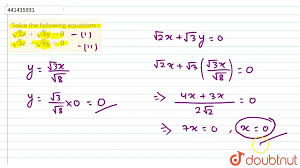 441435931
Solve the following equations
√2x + √3y = 0 - (i)
√3x - √8y = 0 - (ii)
y = √3x/√8
y = √3/√8 × 0 = 0
√2x + √3y = 0
√2x + √3(√3x/√8) = 0
⇒ 4x + 3x/2√2 = 0
⇒ 7x = 0, x = 0
doubtnut